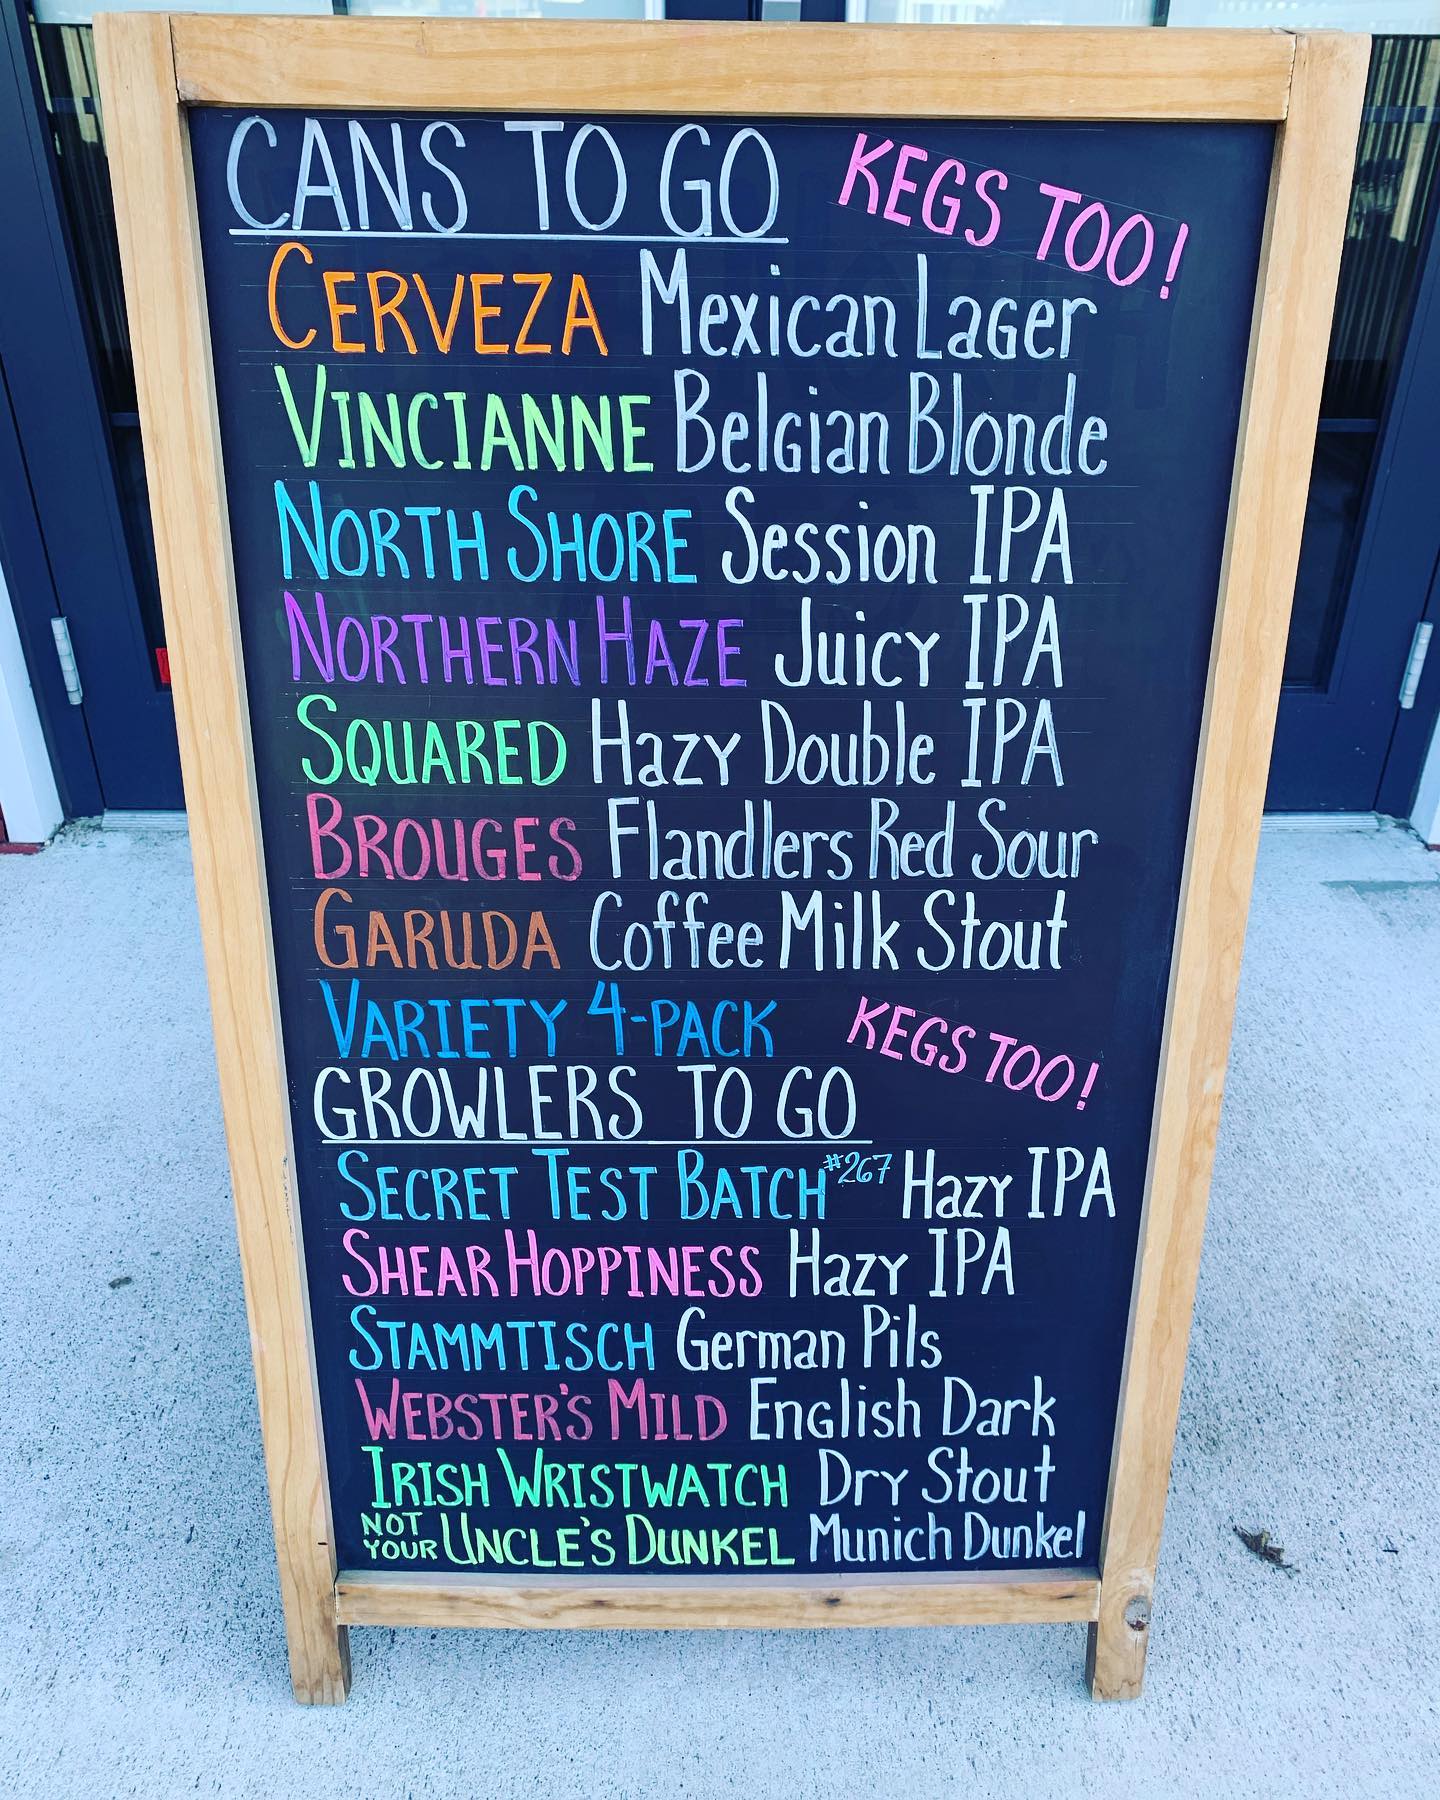 CANS TO GO KEGS TOO!
CERVEZA Mexican Lager
VINCIANNE Belgian Blonde
NORTH SHORE Session IPA
NORTHERN HAZE Juicy IPA
SQUARED Hazy Double IPA
BROUGES Flandlers Red Sour
GARUDA Coffee Milk Stout
VARIETY 4-PACK KEGS TOO!
GROWLERS TO GO
SECRET TEST BATCH #267 Hazy IPA
SHEAR HOPPINESS Hazy IPA
STAMMTISCH German Pils
WEBSTER'S MILD English Dark
IRISH WRISTWATCH Dry Stout
NOT YOUR UNCLE'S DUNKEL Munich Dunkel